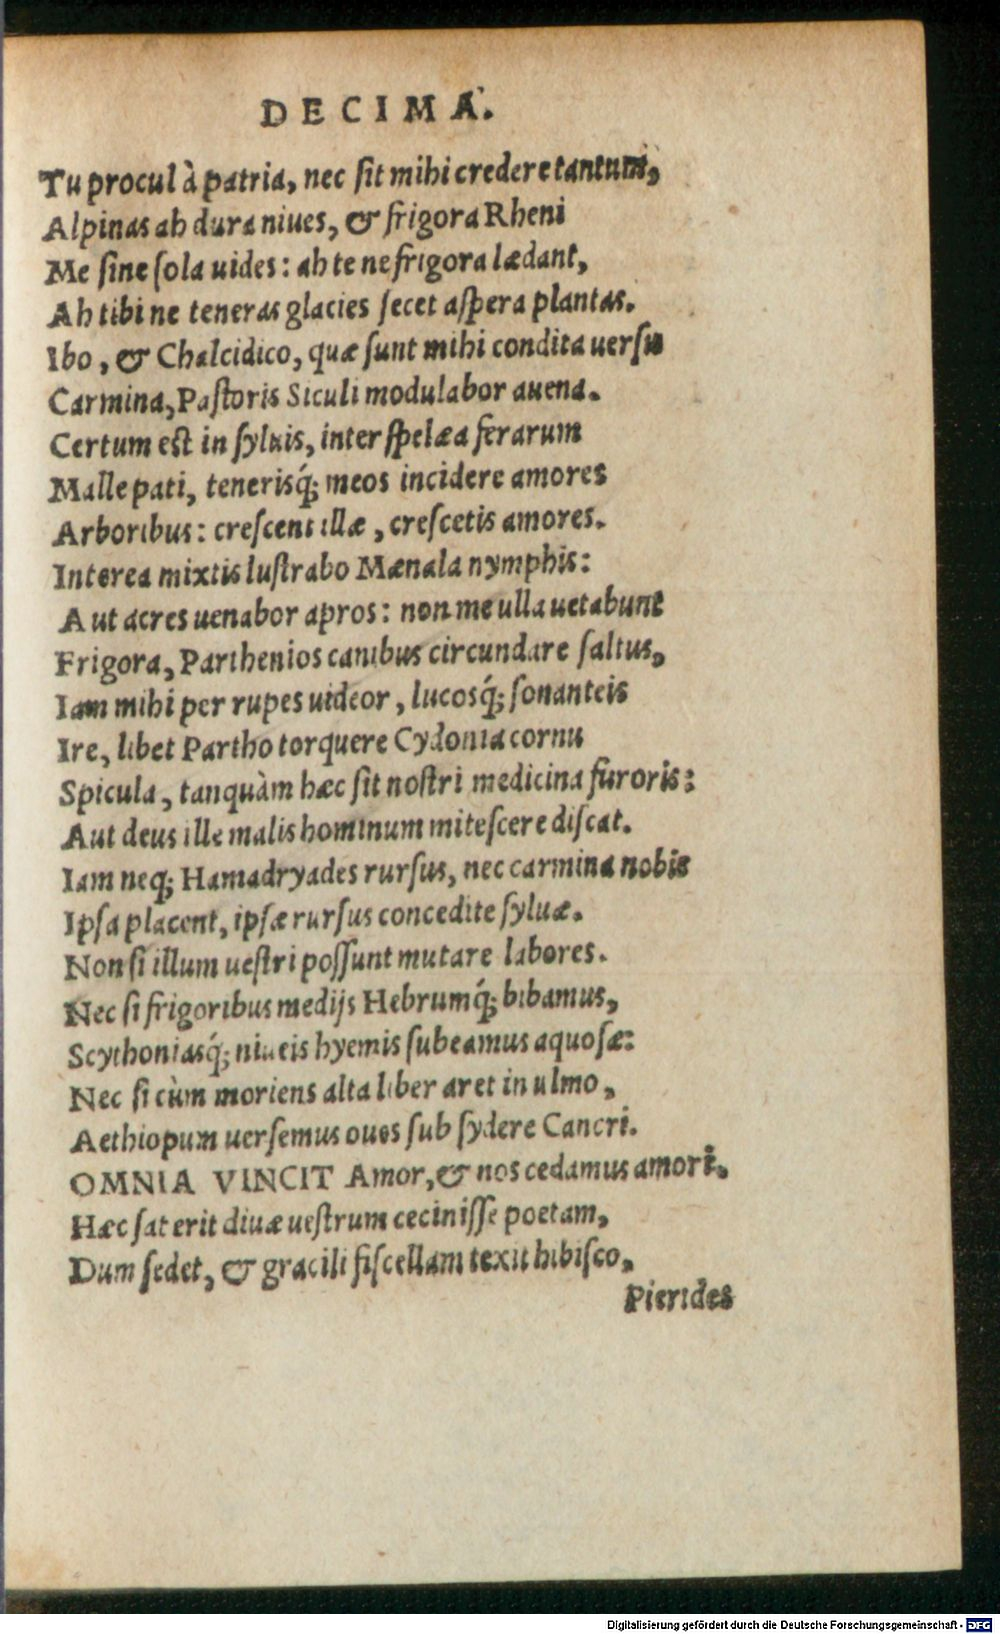 DECIMA.
Tu procul à patria, nec ſit mihi credere tantum,
Alpinas ah dura niues, & frigora Rheni
Me ſine ſola uides: ah te ne frigora lædant,
Ah tibi ne teneras glacies ſecet aſpera plantas.
Ibo, & Chalcidico, quæ ſunt mihi condita uerſu
Carmina, Paſtoris Siculi modulabor auena.
Certum eſt in ſyluis, inter ſpelæa ferarum
Malle pati, tenerisq́; meos incidere amores
Arboribus: creſcent illæ, creſcetis amores.
Interea mixtis luſtrabo Mænala nymphis:
Aut acres uenabor apros: non me ulla uetabunt
Frigora, Parthenios canibus circundare ſaltus,
Iam mihi per rupes uideor, lucosq́; ſonanteis
Ire, libet Partho torquere Cydonia cornu
Spicula, tanquàm hæc ſit noſtri medicina furoris:
Aut deus ille malis hominum miteſcere diſcat.
Iam neq; Hamadryades rurſus, nec carmina nobis
Ipſa placent, ipſæ rurſus concedite ſyluæ.
Non ſi illum ueſtri poſſunt mutare labores.
Nec ſi frigoribus medijs Hebrumq́; bibamus,
Scythoniasq́; niueis hyemis ſubeamus aquoſæ:
Nec ſi cùm moriens alta liber aret in ulmo,
Aethiopum uerſemus oues ſub ſydere Cancri.
OMNIA VINCIT Amor, & nos cedamus amori.
Hæc ſat erit diuæ ueſtrum ceciniſſe poetam,
Dum ſedet, & gracili fiſcellam texit hibiſco,
Pierides
Digitalisierung gefördert durch die Deutsche Forschungsgemeinschaft - DFG